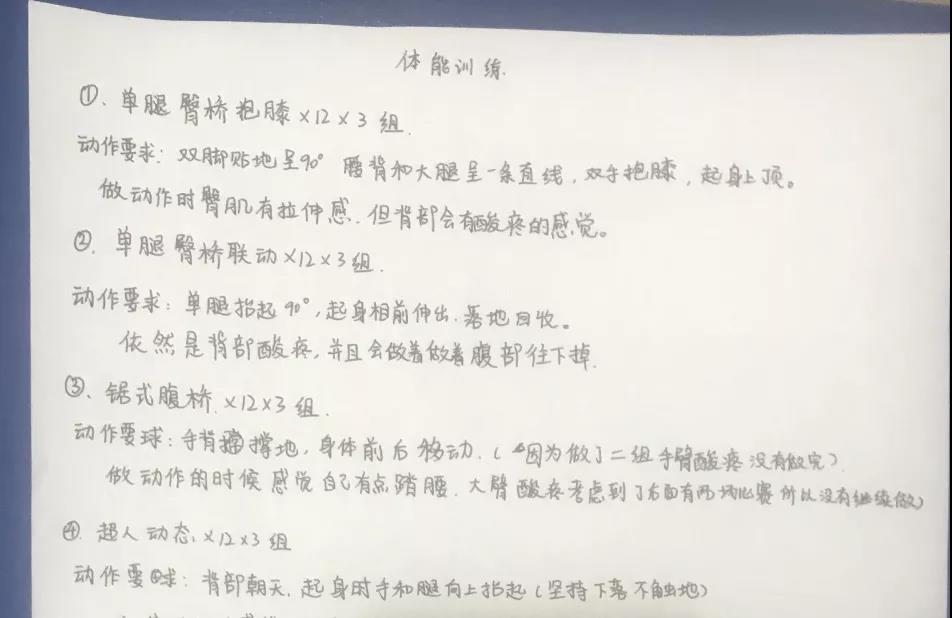 体能训练.
①、单腿臀桥抱膝×12×3组.
动作要求：双脚贴地呈90° 腰背和大腿呈一条直线，双手抱膝，起身上顶。
做动作时臀肌有拉伸感.但背部会有酸疼的感觉。
②、单腿臀桥联动×12×3组.
动作要求：单腿抬起90°，起身相前伸出.落地回收。
依然是背部酸疼，并且会做着做着腹部往下掉.
③、锯式腹桥.×12×3组.
动作要球：手背撑地，身体前后移动.（因为做了二组手臂酸疼没有做完）.
做动作的时候感觉自己有点踏腰.大臂酸疼考虑到了后面有两场比赛所以没有继续做）
④.超人动态.×12×3组
动作要球：背部朝天.起身时手和腿向上抬起（坚持下落不触地）